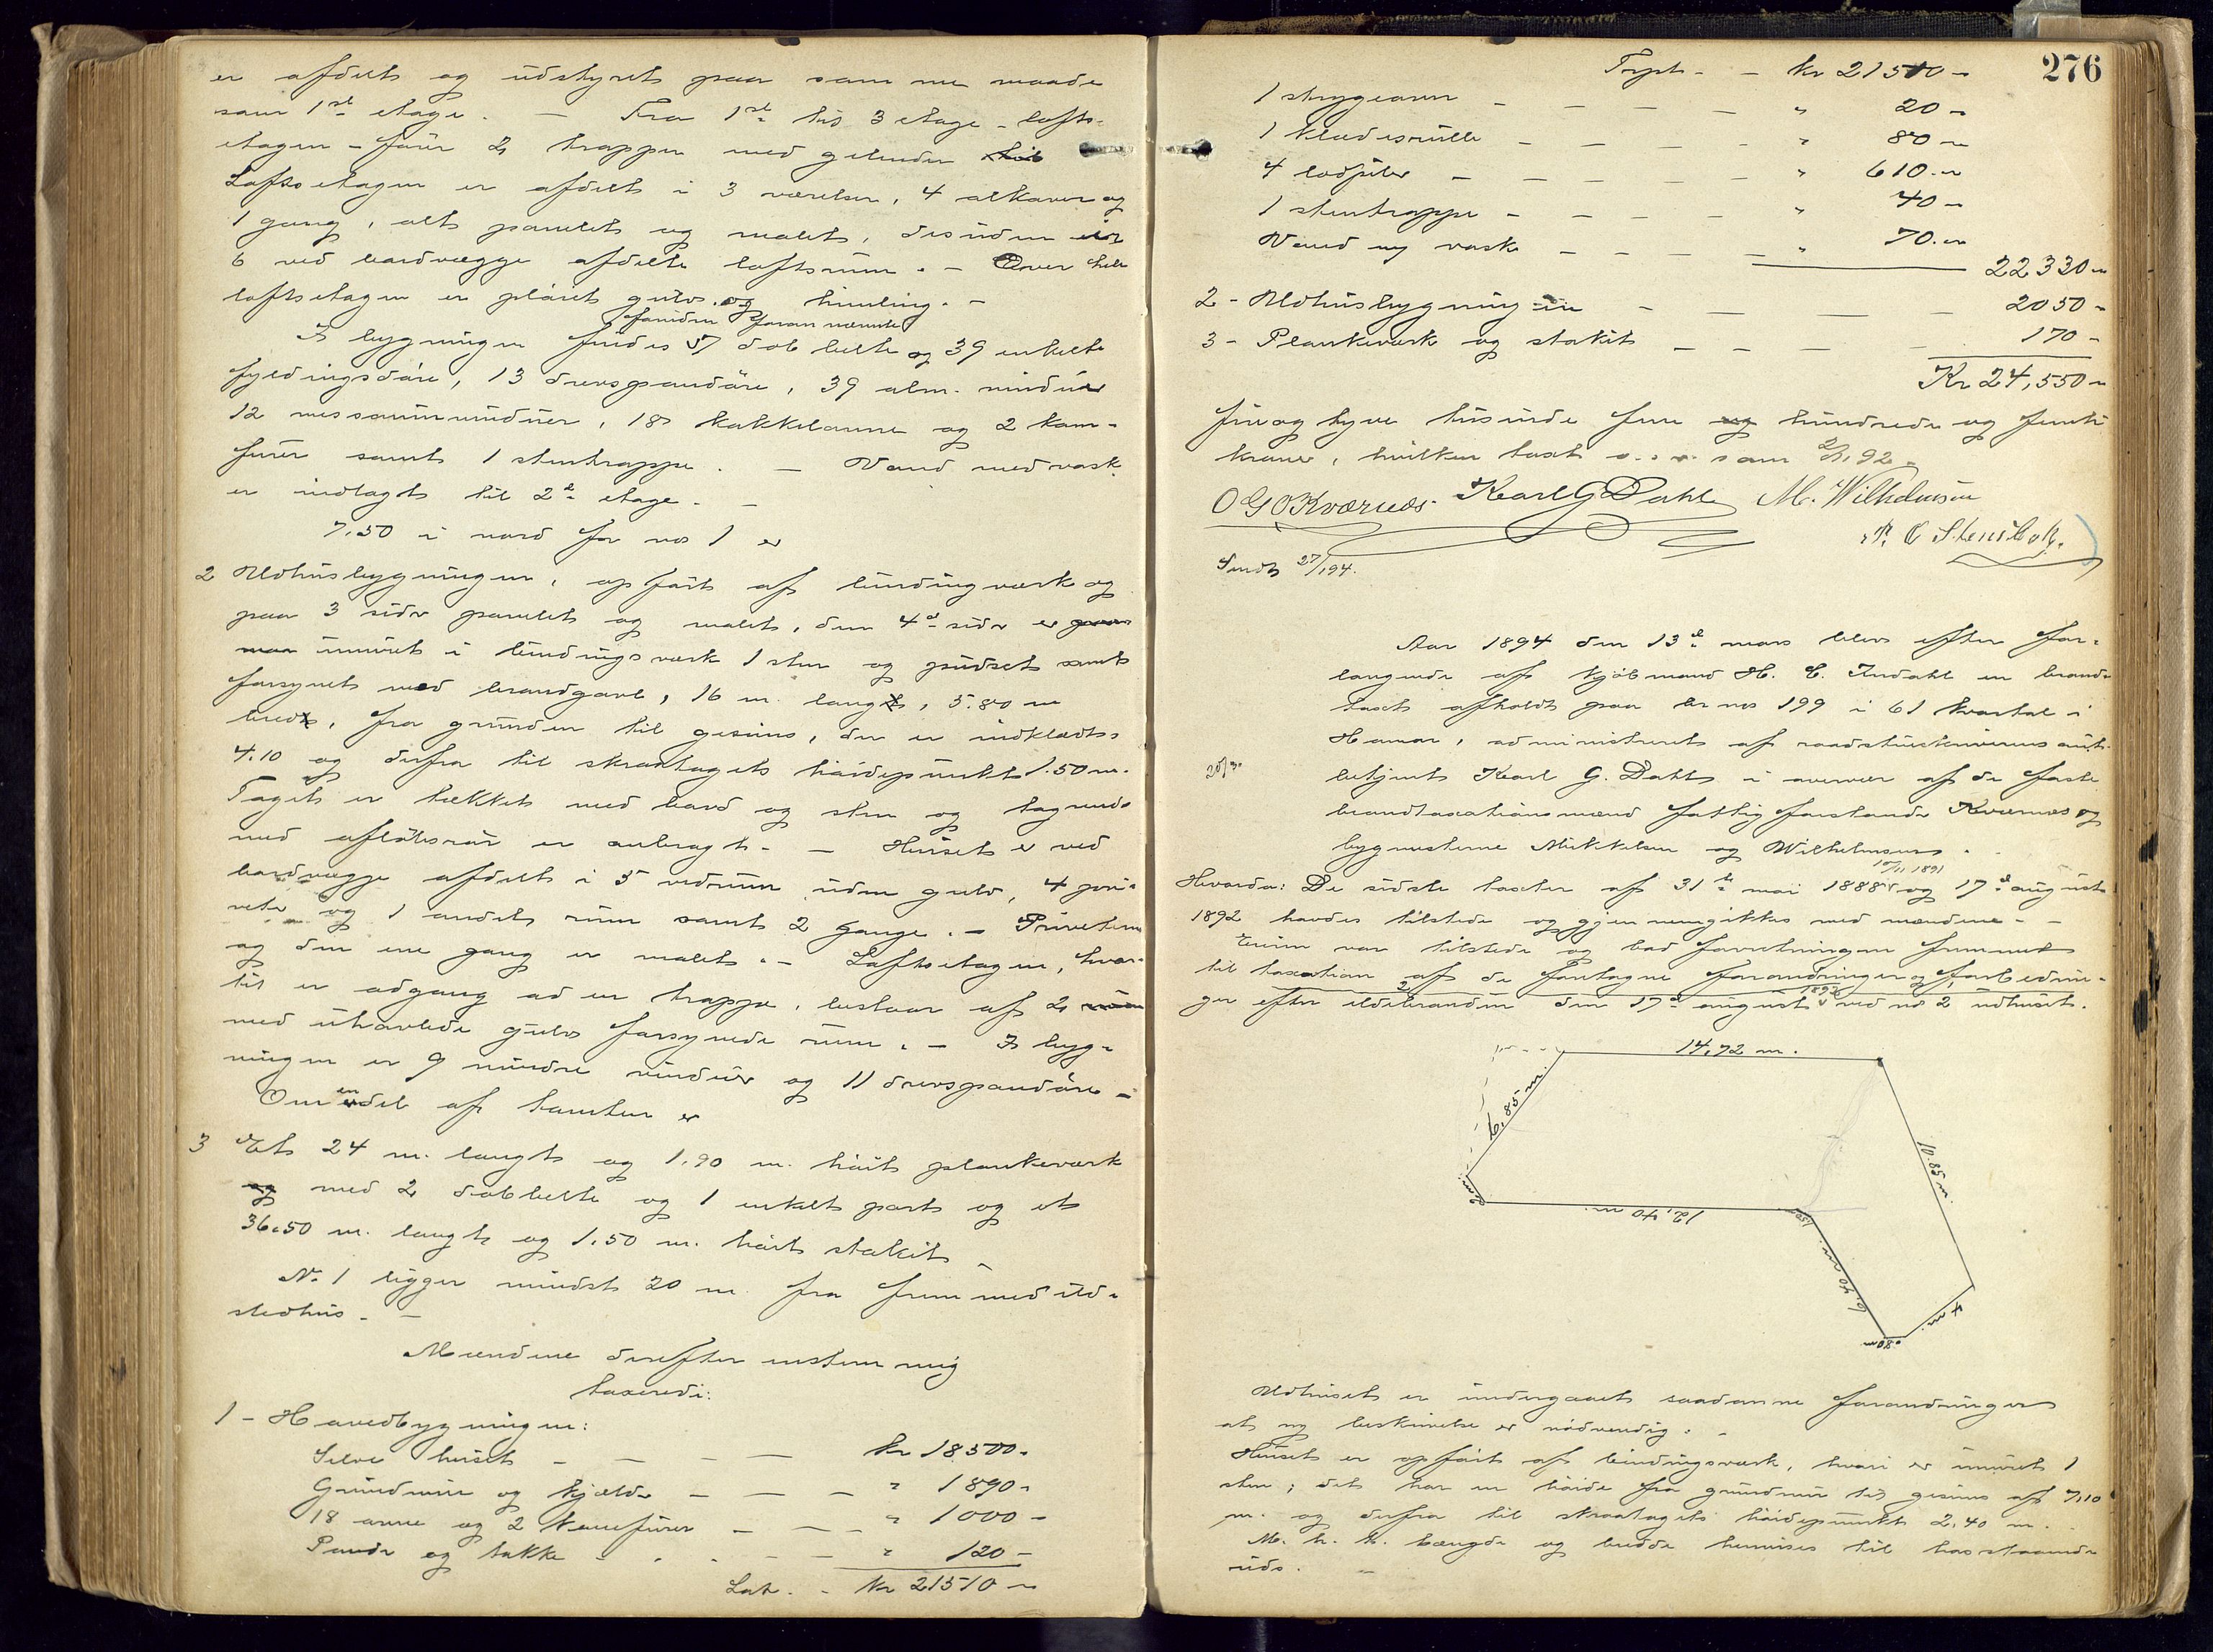 er afdelt og udstyret paa samme maade
som 1ste etage. — Fra 1ste til 3 etage - lofts-
etagen - fører 2 trapper med gelender
Loftsetagen er afdelt i 3 værelser, 4 alkover og
1 gang, alt panelet og malet, desuden er
6 ved bordvægge afdelte loftsrum. — Over hele
loftsetagen er pløiet gulv og himling. —
foruden foran nævnte
I bygningen findes 57 dobbelte og 39 enkelte
fyldingsdøre, 13 drevspandøre, 39 alm. vinduer
12 messaninvinduer, 18 kakkelovne og 2 kom-
fürer samt 1 stentrappe. — Vand med vask
er indlagt til 2d etage. —
7.50 i nord for no 1 er
2 Udhusbygningen, opført af bindingværk og
paa 3 sider panelet og malet, den 4d side er
inmuret i bindingsværk 1 sten og pudset samt
forsynet med brandgavl, 16 m. lang, 5.80 m
bred, fra grunden til gesims, der er indklædt,
4.10 og derfra til skraatagets høidepunkt 1.50 m.
Taget er tækket med bord og sten og tagrende
med afløbsrør er anbragt. — Huset er ved
bordvægge afdelt i 5 vedrum uden gulv, 4 pri-
veter og 1 andet rum samt 2 gange. — Priveterne
og den ene gang er malet. — Loftsetagen, hvor-
til er adgang ad en trappe, bestaar af 2
med uhøvlede gulv forsynede rum. — I byg-
ningen er 9 mindre vinduer og 11 drevspandøre —
Om en del af tomten er
3 Et 24 m. langt og 1.90 m. høit plankeværk
med 2 dobbelte og 1 enkelt port og et
36.50 m. langt og 1.50 m. høit stakit
No 1 ligger mindst 20 m. fra fremmed ild-
stedhus. —
Mændene derefter enstemmig
taxerede:
1 - Hovedbygningen:
Selve huset — — — — kr 18500 -
Grundmur og kjælder — — — " 1890 -
18 ovne og 2 komfürer — — — " 1000 -
Pande og takke - - - - — " 120 -
Lat. - kr 21510 -
276
Trspt. - - kr 21510 -
1 strygeovn — — — — " 20 -
1 klædesrulle — — — — " 80 -
4 lodpiber — — — — " 610. -
1 stentrappe — — — — " 40 -
Vand og vask — — — — " 70. -
22330 -
2 - Udhusbygningen — — — — 2050 -
3 - Plankeværk og stakit — — — — 170 -
Kr 24,550 -
fireogtyve tusinde fem hundrede og femti
kroner, hvilken taxt s. . . som
O G O Kværnes. Karl G Dahl M. Wilhelmsen
P. C Stensbak.
Sendt 27/1 94.
Aar 1894 den 13d mars blev efter for-
langende af kjøbmand H. C. Indahl en brand-
taxt afholdt paa br no 199 i 61 kvartal i
Hamar, administreret af raadstueskriverens aut.
betjent Karl G. Dahl i overvær af de faste
brandtaxationsmænd fattigforstander Kværnes og
bygmesterne Mikkelsen og Wilhelmsen.
10/11 1891
Hvorda: De sidste taxter af 31te mai 1888 og 17d august
1892 havdes tilstede og gjennemgikkes med mændene. —
Eieren var tilstede og bad forretningen fremmet
til taxation af de foretagne forandringer og forbedrin-
1892
ger efter ildebranden den 17d august ved no 2 udhuset.
14,72 m.
6,85 m.
2 m.
12,40 m.
1,50
6,40 m.
0,80 m
4 m.
10.85 m.
Udhuset er undergaaet saadanne forandringer
at ny beskrivelse er nødvendig. —
Huset er opført af bindingsværk, hvori er inmuret 1
sten; det har en høide fra grundmur til gesims af 7,10
m. og derfra til skraatagets høidepunkt 2,40 m.
M. h. t. længde og bredde henvises til hosstaaende
rids. —